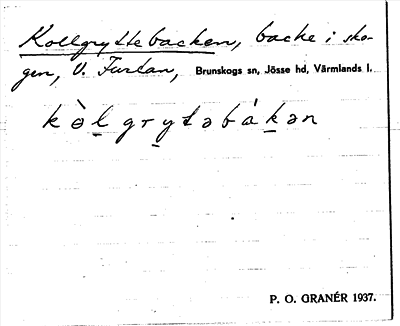 Kollgryttebacken, backe i sko-
gen, V. Furtan, Brunskogs sn, Jösse hd, Värmlands l.
kò̱lgrytəbákən
P. O. GRANÉR 1937.